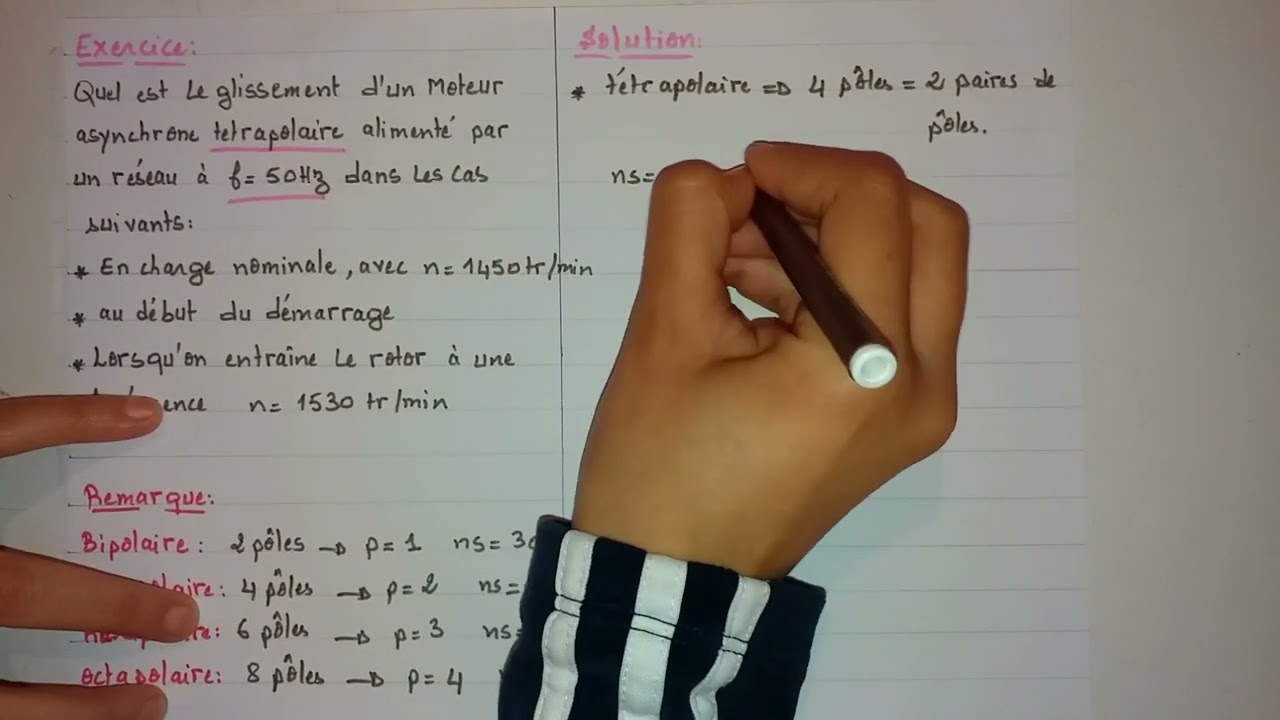 Exercice:
Quel est le glissement d'un Moteur
asynchrone tetrapolaire alimenté par
un réseau à f= 50Hz dans les cas
suivants:
* En charge nominale, avec n= 1450tr/min
* au début du démarrage
* Lorsqu'on entraîne le rotor à une
n= 1530 tr/min
Remarque:
Bipolaire: 2 pôles → p=1 ns=
4 pôles → p=2 ns=
6 pôles → p=3 ns=
octapolaire: 8 pôles → p=4
Solution:
* tétrapolaire => 4 pôles = 2 paires de
pôles.
ns=